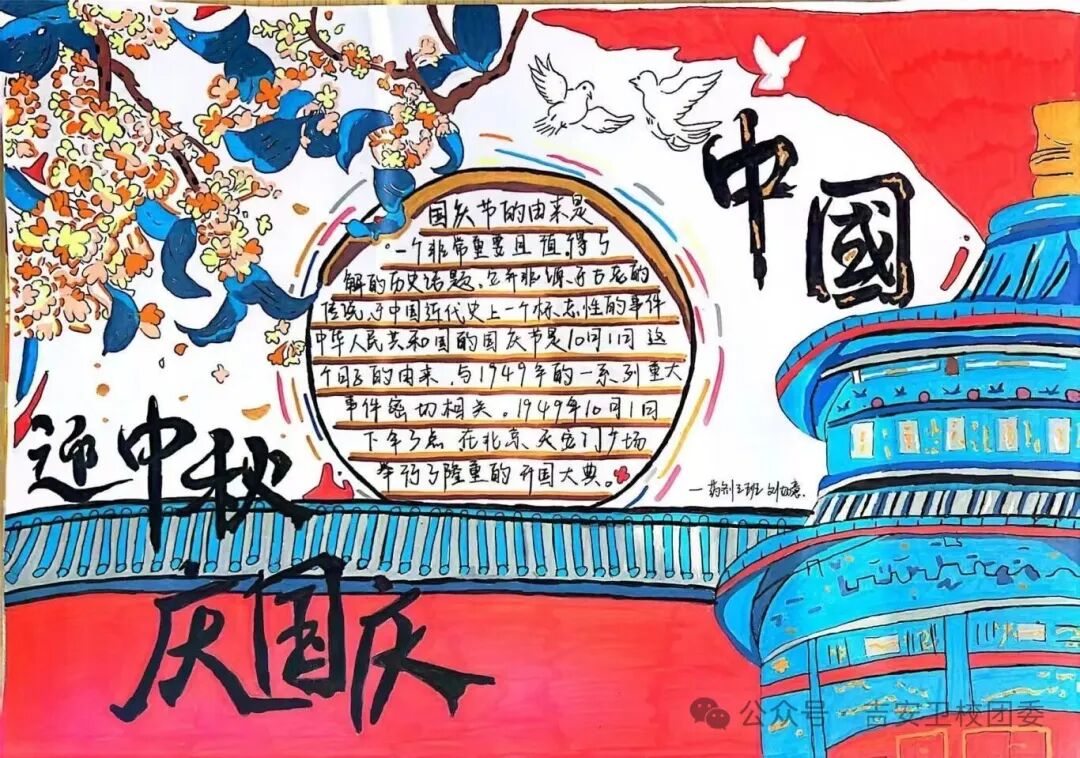 中國
国庆节的由来是
一个非常重要且值得了
解的历史话题,它并非源于古老的
传说,于中国近代史上一个标志性的事件
中华人民共和国的国庆节是10月1日这
个日子的由来,与1949年的一系列重大
事件密切相关。1949年10月1日
下午3点在北京天安门广场
举行了隆重的开国大典。
迎中秋
庆国庆
公众号·吉安卫校团委